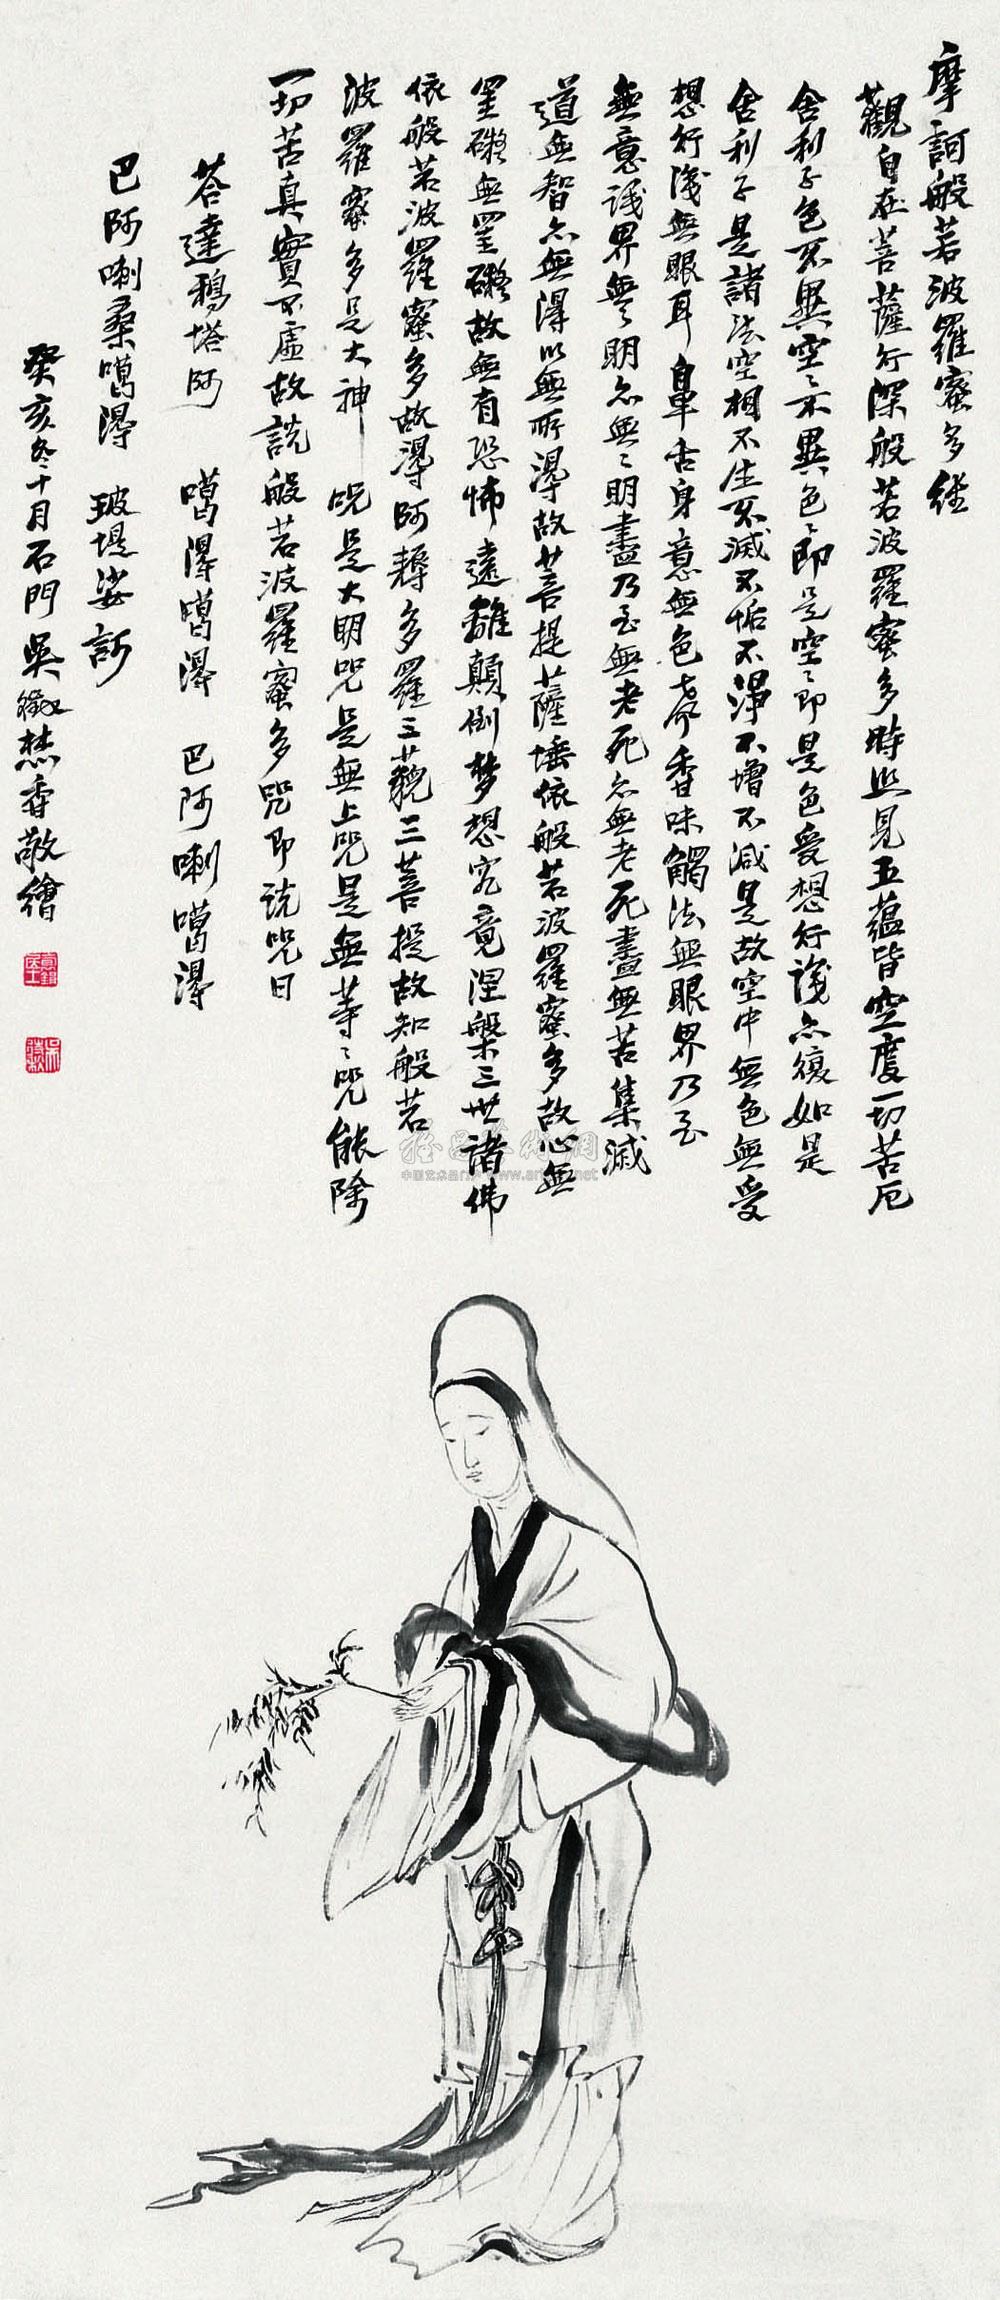 摩訶般若波羅蜜多經
觀自在菩薩行深般若波羅蜜多時照見五蘊皆空度一切苦厄
舍利子色不異空〻不異色〻即是空〻即是色受想行識亦復如是
舍利子是諸法空相不生不滅不垢不淨不增不減是故空中無色無受
想行識無眼耳鼻舌身意無色聲香味觸法無眼界乃至
無意識界無無明亦無〻明盡乃至無老死亦無老死盡無苦集滅
道無智亦無得以無所得故菩提薩埵依般若波羅蜜多故心無
罣礙無罣礙故無有恐怖遠離顛倒夢想究竟涅槃三世諸佛
依般若波羅蜜多故得阿耨多羅三藐三菩提故知般若
波羅蜜多是大神咒是大明咒是無上咒是無等〻咒能除
一切苦真實不虛故說般若波羅蜜多咒即說咒曰
荅達鴉塔阿 噶得噶得 巴阿喇噶得
巴阿喇桑噶得 玻堤娑訶
癸亥冬十月石門吳徵焚香敬繪
吳徵
中国艺术品门户 www.net